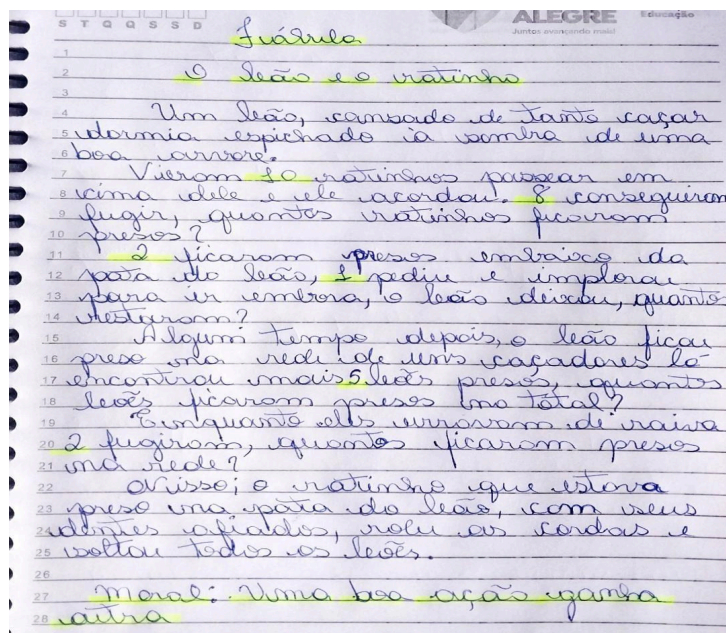 S T Q Q S S D
ALEGRE
Educação
Juntos avançando mais!
Fuábula
1
2 O leão e o ratinho
3
4 Um leão, cansado de tanto caçar
5 dormia espichado à sombra de uma
6 boa arvore.
7 Vieram 10 ratinhos passear em
8 cima dele e ele acordou. 8 conseguiram
9 fugir, quantos ratinhos ficaram
10 presos?
11 2 ficaram presos embaixo da
12 pata do leão, 1 pediu e implorou
13 para ir embora, o leão deixou, quantos
14 restaram?
15 Algum tempo depois, o leão ficou
16 preso na rede de uns caçadores lá
17 encontrou mais 5 leões presos, quantos
18 leões ficaram presos no total?
19 Enquanto eles urravam de raiva
20 2 fugiram, quantos ficaram presos
21 na rede?
22 Nisso; o ratinho que estava
23 preso na pata do leão, com seus
24 dentes afiados, roeu as cordas e
25 soltou todos os leões.
26
27 Moral: Uma boa ação ganha
28 outra